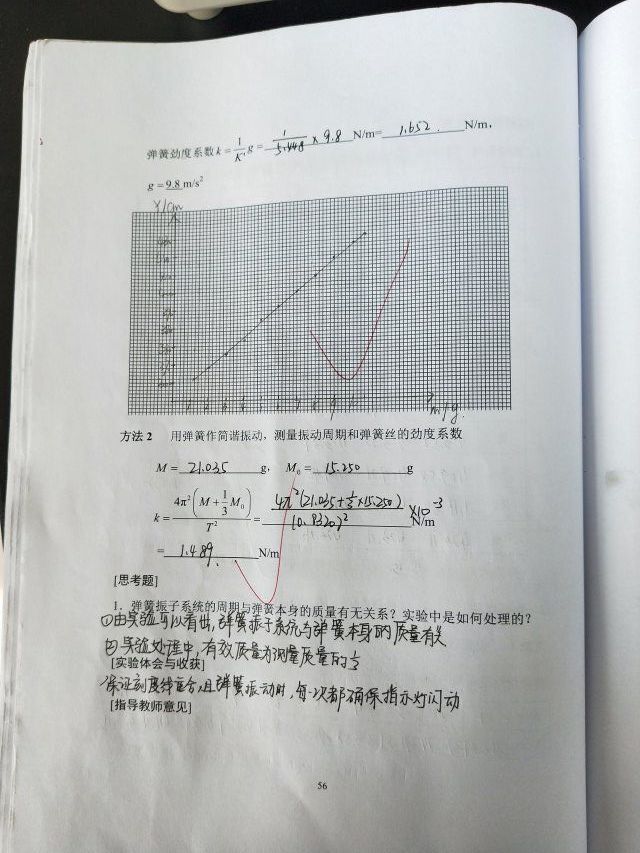 弹簧劲度系数 k = 1/K' g = 1/5.448 × 9.8 N/m= 1.652 N/m,
g = 9.8 m/s²
Y/cm
m/g.
方法 2 用弹簧作简谐振动，测量振动周期和弹簧丝的劲度系数
M = 21.035 g， M₀ = 15.250 g
k = 4π²(M + 1/3 M₀)/T² = 4π²(21.035+1/3×15.250)/(0.9320)² ×10⁻³ N/m
= 1.489. N/m
[思考题]
1．弹簧振子系统的周期与弹簧本身的质量有无关系？实验中是如何处理的？
①由实验可以看出,弹簧振子系统与弹簧本身的质量有关
②实验处理中,有效质量为测量质量的1/3
[实验体会与收获]
保证刻度线重合,且弹簧振动时,每一次都确保指示灯闪动
[指导教师意见]
56